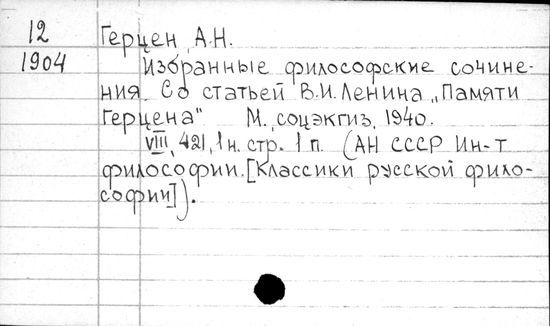 12
1904
Герцен, А.Н.
Избранные философские сочине-
ния. Со статьей В.И.Ленина „Памяти
Герцена" М., соцэкгиз, 1940.
VIII, 421, 1н. стр. 1 п. (АН СССР Ин-т
философии. [Классики русской фило-
софии]).